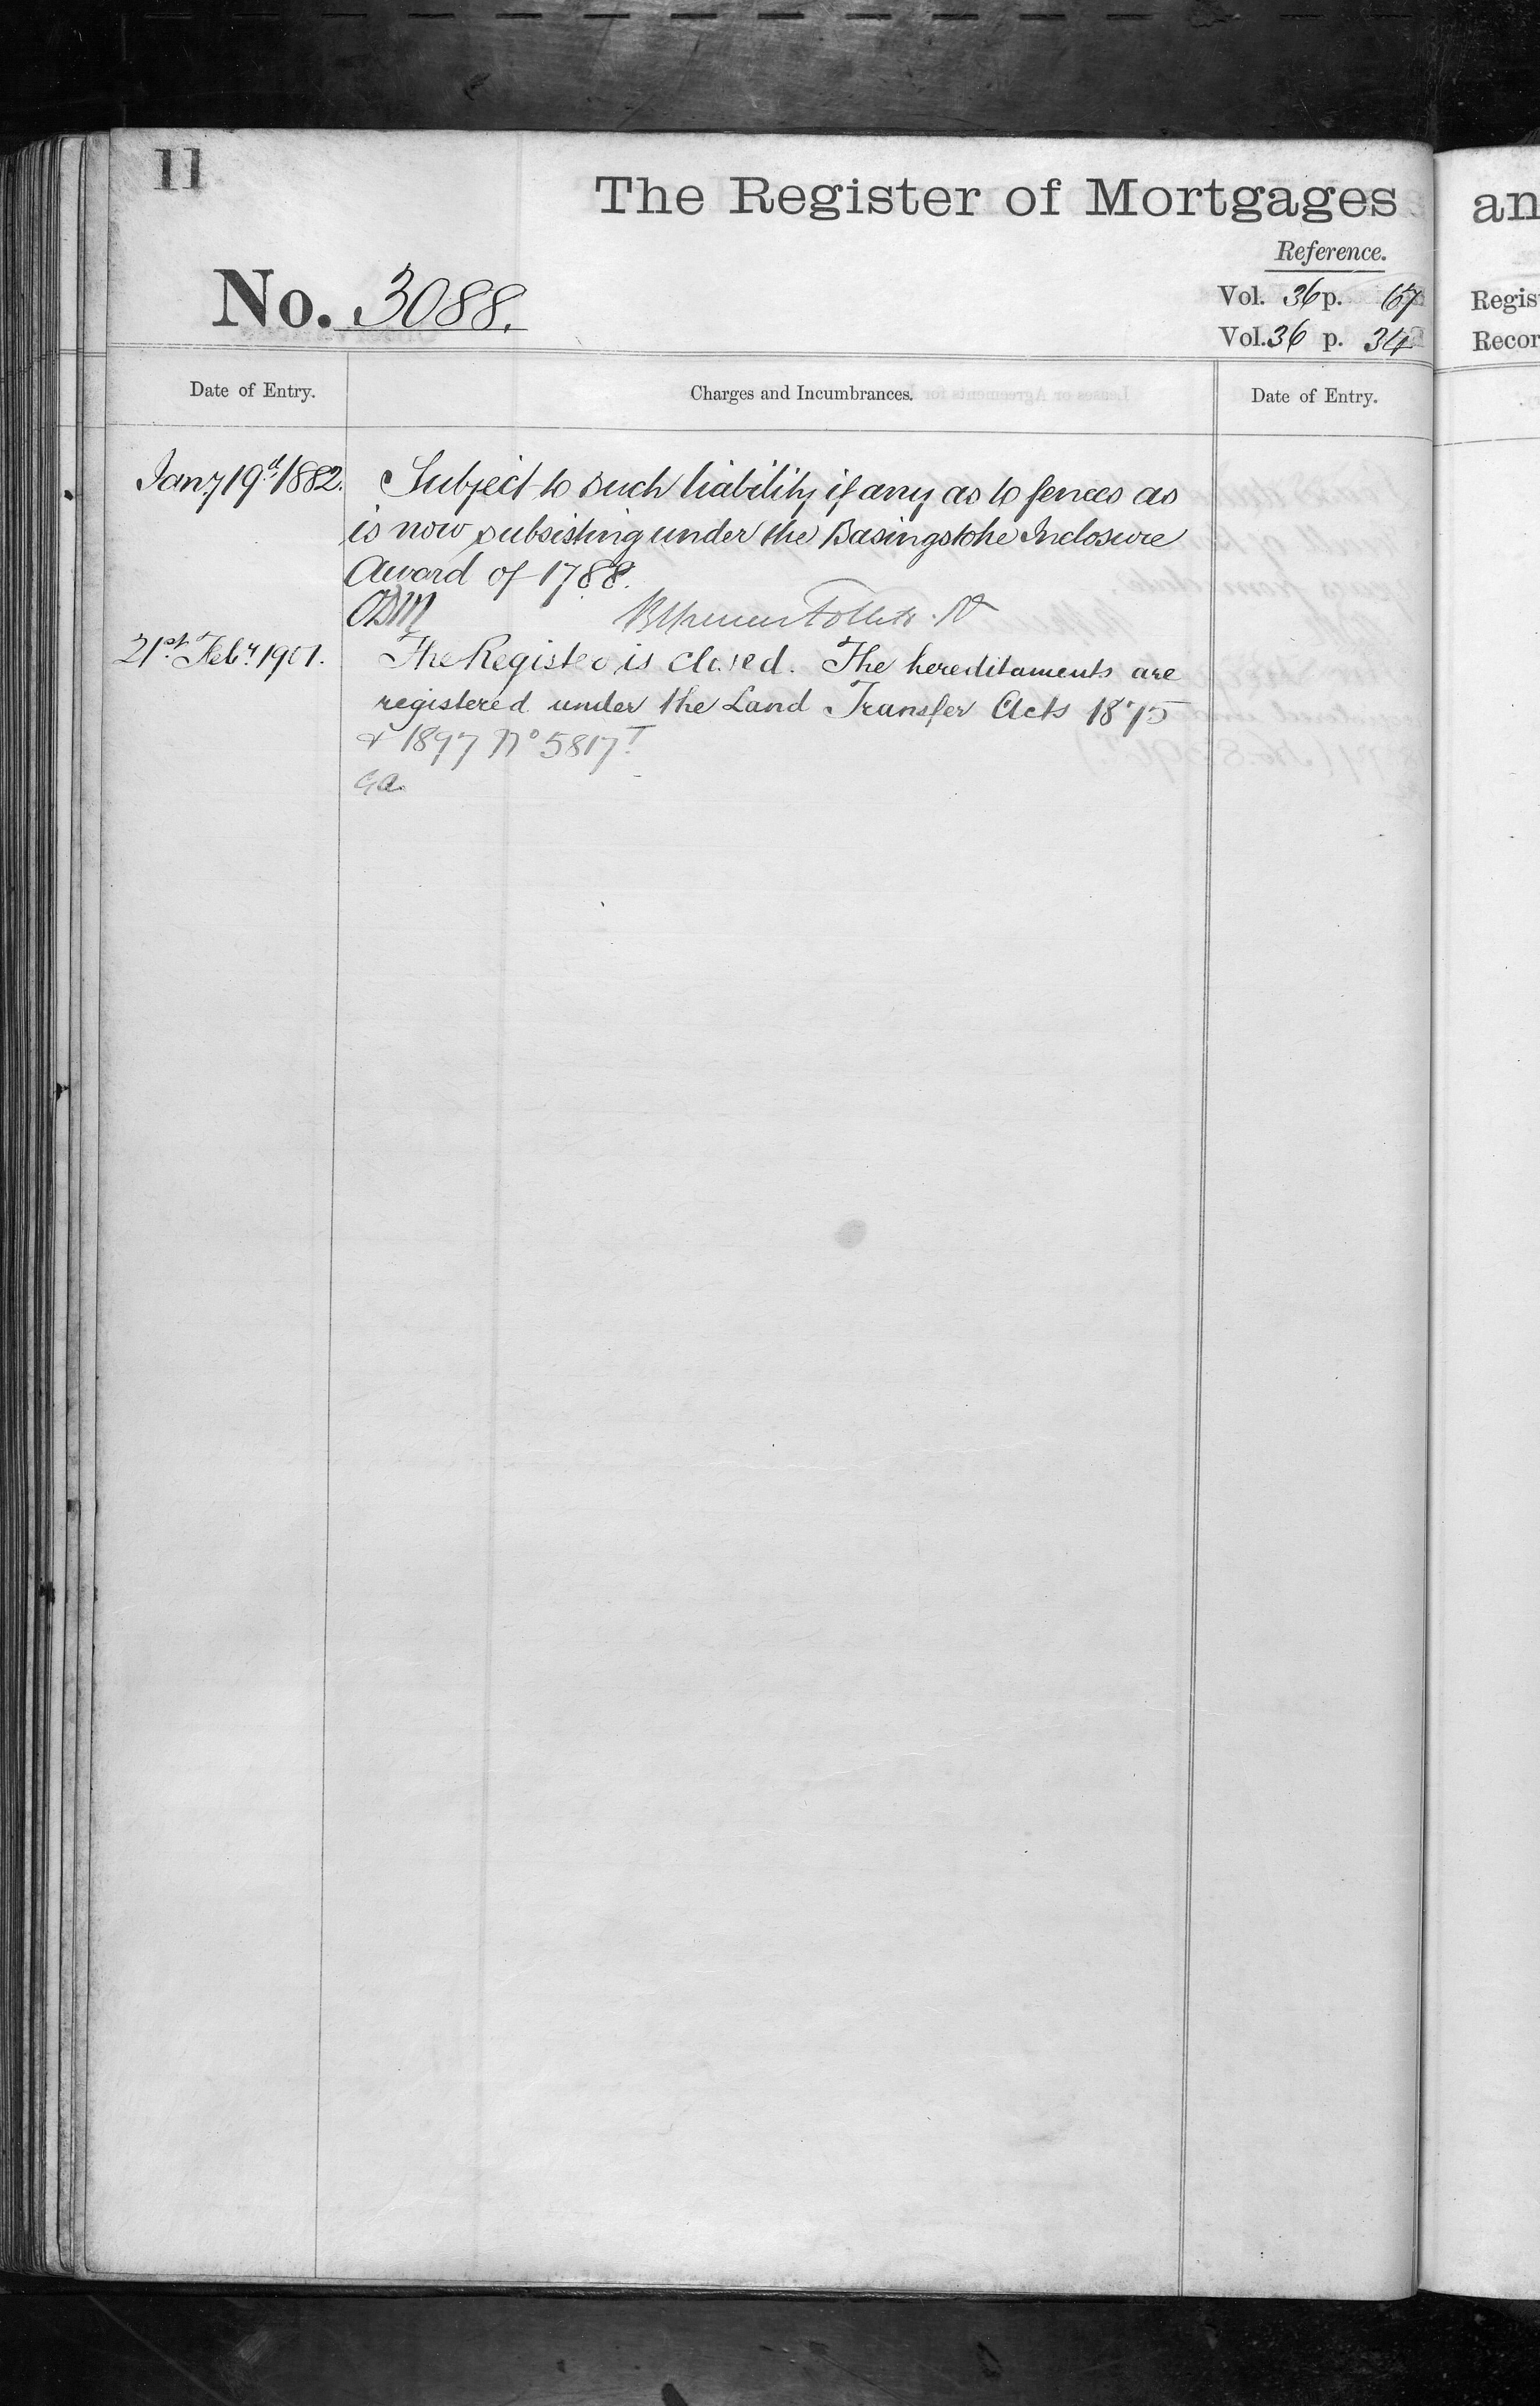 11
The Register of Mortgages
an
Reference.
No. 3088.
Vol. 36 p. 67
Vol. 36 p. 34
Regis
Recor
Date of Entry.
Charges and Incumbrances.
Date of Entry.
Jany 19th 1882.
Subject to such liability if any as to fences as
is now subsisting under the Basingstoke Inclosure
Award of 1788.
21st Feby 1901.
The Register is closed. The hereditaments are
registered under the Land Transfer Acts 1875
& 1897 No 5817T